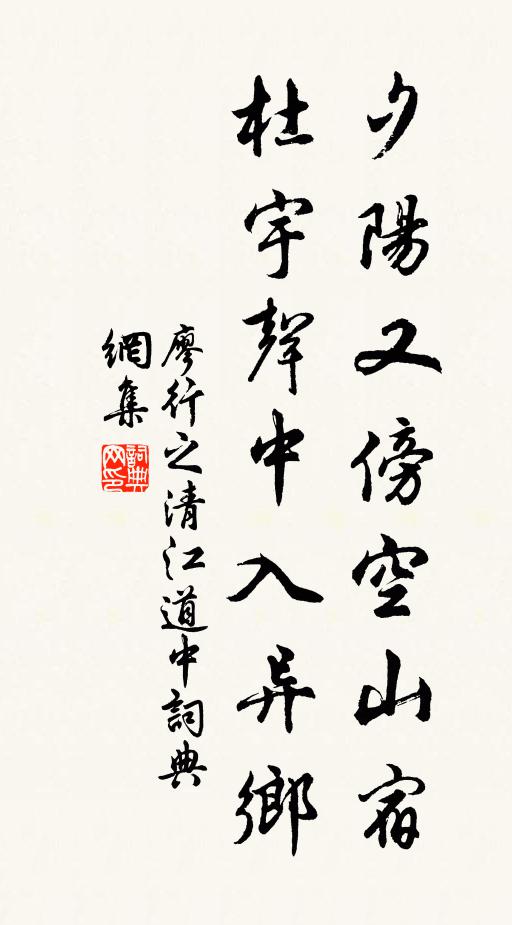 夕陽又傍空山宿
杜宇聲中入异鄉
廖行之清江道中詞典
網集
詞典
网印